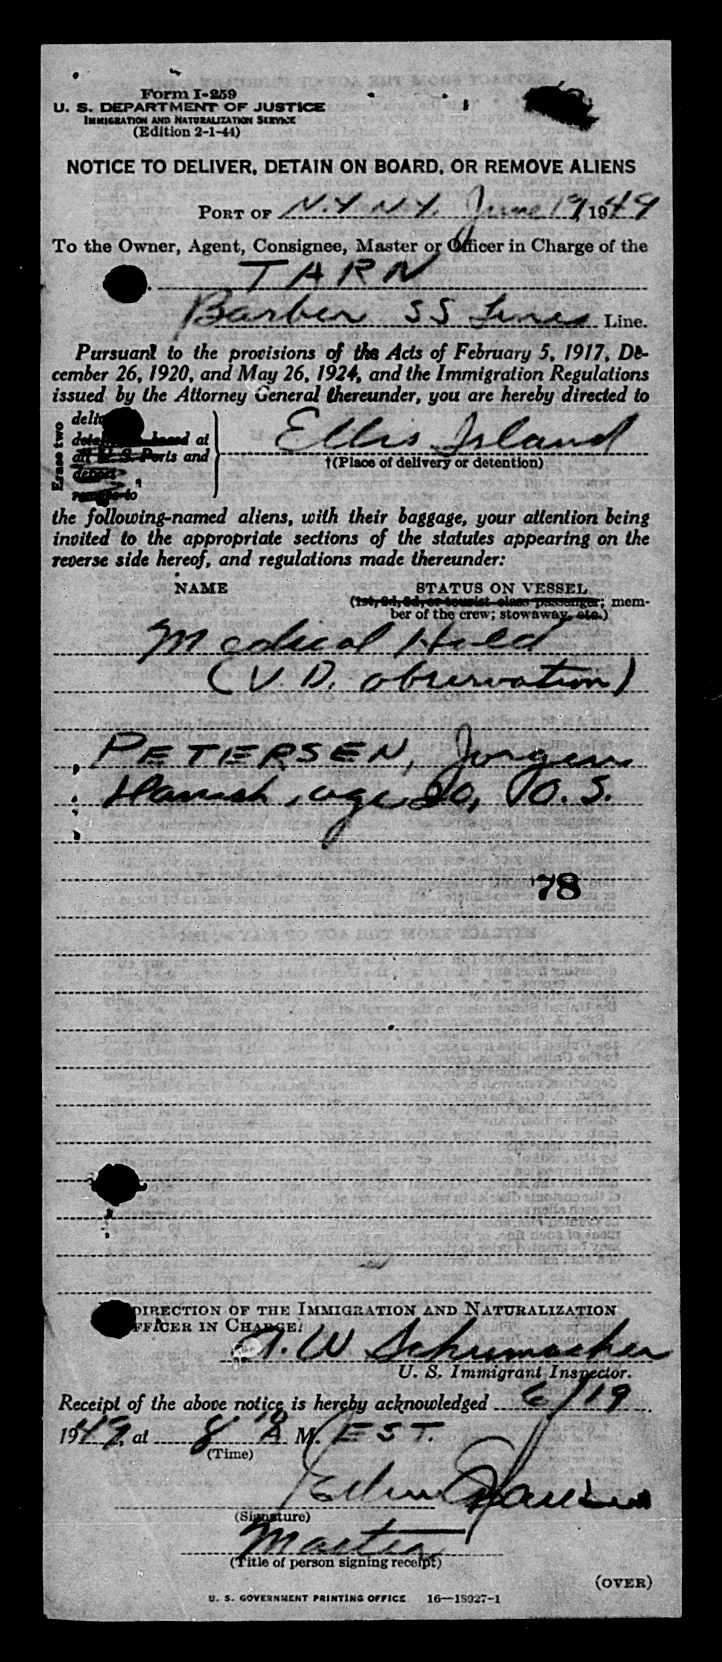 Form I-259
U. S. DEPARTMENT OF JUSTICE
IMMIGRATION AND NATURALIZATION SERVICE
(Edition 2-1-44)
NOTICE TO DELIVER, DETAIN ON BOARD, OR REMOVE ALIENS
PORT OF N.Y. N.Y. June 19, 1949
To the Owner, Agent, Consignee, Master or Officer in Charge of the
TARN
Barber SS Lines Line.
Pursuant to the provisions of the Acts of February 5, 1917, De-
cember 26, 1920, and May 26, 1924, and the Immigration Regulations
issued by the Attorney General thereunder, you are hereby directed to
Erase two
at
all U. S. Ports and
deport
remove to
Ellis Island
†(Place of delivery or detention)
the following-named aliens, with their baggage, your attention being
invited to the appropriate sections of the statutes appearing on the
reverse side hereof, and regulations made thereunder:
NAME STATUS ON VESSEL
(1st, 2d, 3d, or tourist class passenger; mem-
ber of the crew; stowaway, etc.)
Medical Hold
(V.D. observation)
PETERSEN, Jorgen
Danish, age 20, O.S.
78
DIRECTION OF THE IMMIGRATION AND NATURALIZATION
OFFICER IN CHARGE:
A. W. Schumacher
U. S. Immigrant Inspector.
Receipt of the above notice is hereby acknowledged 6/19
1949, at 8 10 A M. EST.
(Time)
(Signature)
Master
(Title of person signing receipt)
(OVER)
U. S. GOVERNMENT PRINTING OFFICE 16—18927-1